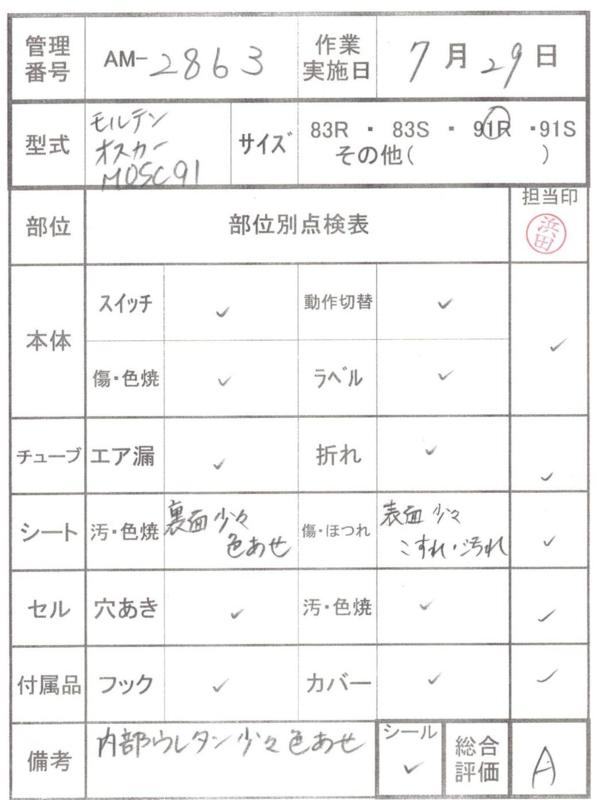 管理番号 AM-2863 作業実施日 7月29日
型式 モルテン オスカー MOSC91 サイズ 83R ・ 83S ・ 91R ・91S
その他( )
部位 部位別点検表 担当印 浜田
本体 スイッチ ✓ 動作切替 ✓ ✓
傷・色焼 ✓ ラベル ✓
チューブ エア漏 ✓ 折れ ✓ ✓
シート 汚・色焼 裏面少々色あせ 傷・ほつれ 表面少々こすれ・汚れ ✓
セル 穴あき ✓ 汚・色焼 ✓ ✓
付属品 フック ✓ カバー ✓ ✓
備考 内部ウレタン少々色あせ シール ✓ 総合評価 A